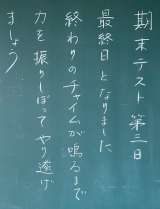 期末テスト第三日
最終日となりました
終わりのチャイムが鳴るまで
力を振りしぼってやり遂げ
ましょう